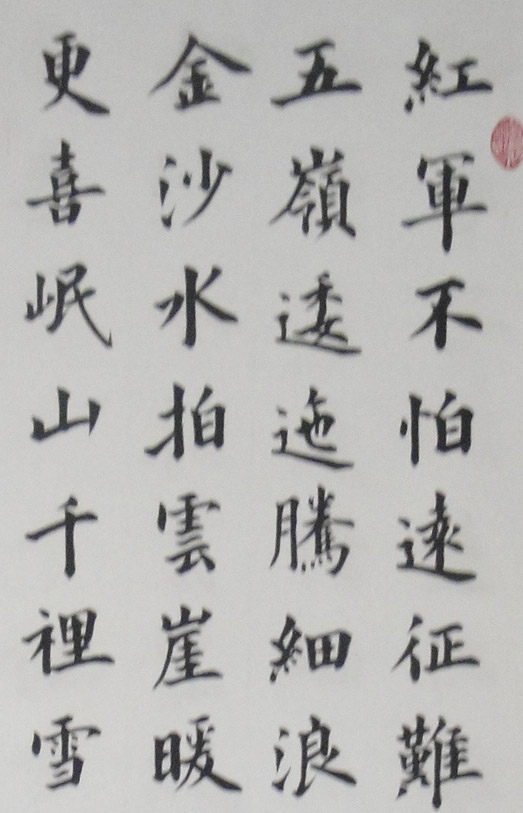 紅軍不怕遠征難
五嶺逶迤騰細浪
金沙水拍雲崖暖
更喜岷山千裡雪